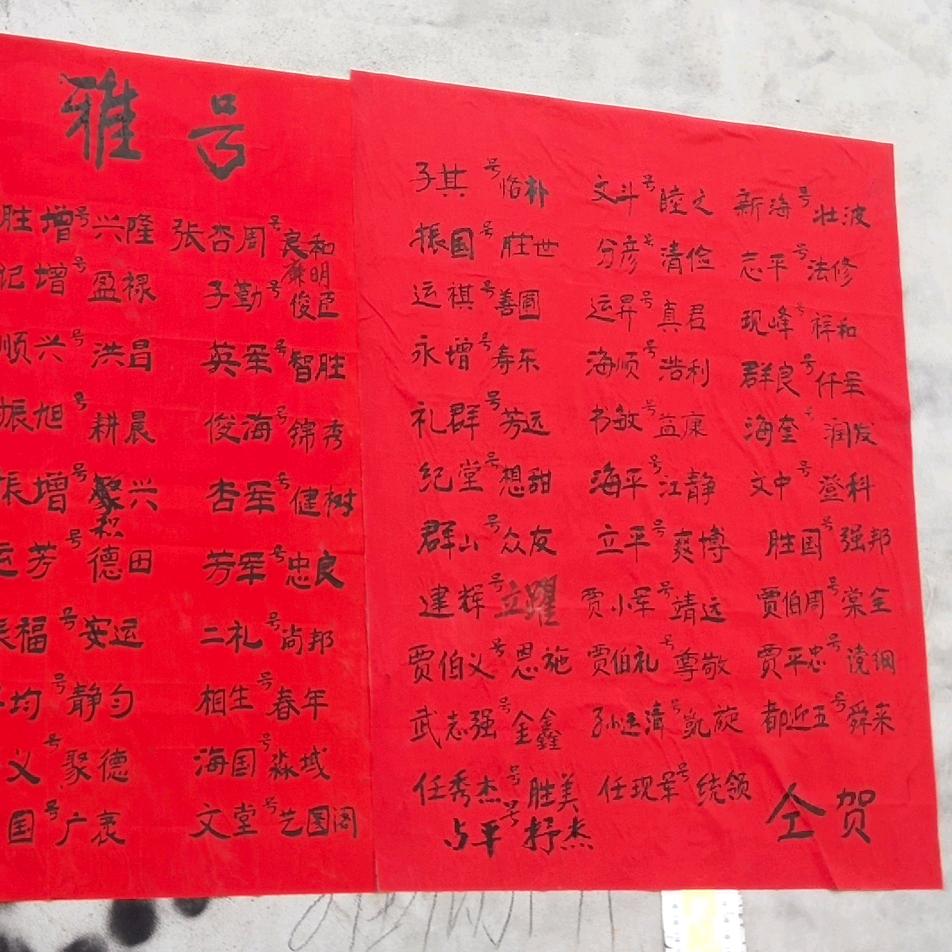 雅号
胜增号兴隆 张杏周号良和
记增号盈禄 子勤号廉明俊臣
顺兴号洪昌 英军号智胜
振旭号耕晨 俊海号锦秀
振增号聚兴 杏军号健树
运芳号德田 芳军号忠良
福号安运 二礼号尚邦
均号静匀 相生号春年
义号聚德 海国号淼域
国号广袤 文堂号艺园阁
子其号恪朴 文斗号睦之 新海号壮波
振国号胜世 分彦号清俭 志平号法修
运祺号善圃 运昇号真君 现峰号祥和
永增号寿东 海顺号浩利 群良号仟圣
礼群号芳远 书敏号益康 海奎号润发
纪堂号想甜 海平号江静 文中号登科
群山号众友 立平号爽博 胜国号强邦
建辉号立躍 贾小军号靖远 贾伯周号棠全
贾伯义号恩施 贾伯礼号尊敬 贾平忠号党纲
武志强号金鑫 孙运清号凯旋 都迎五号舜来
任秀杰号胜美 任现军号统领
占平号抒杰
仝贺